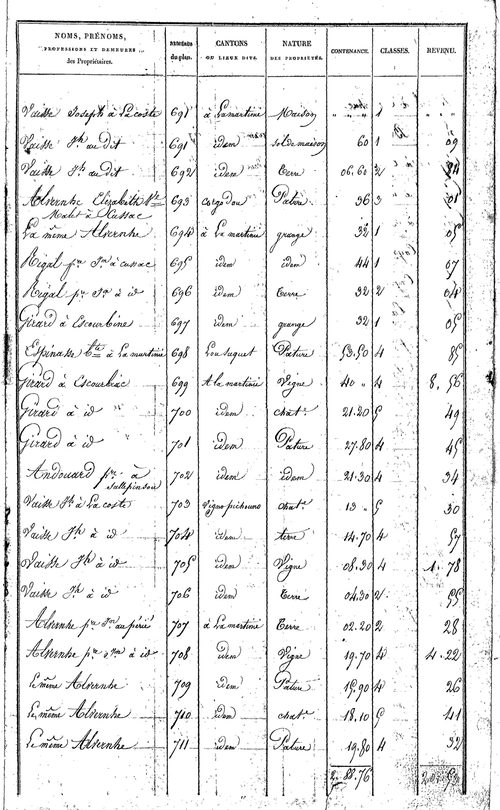 NOMS, PRÉNOMS, PROFESSIONS ET DEMEURES des Propriétaires. NUMÉROS du plan. CANTONS OU LIEUX DITS. NATURE DES PROPRIÉTÉS. CONTENANCE. CLASSES. REVENU.
Vaisse Joseph à Lacoste 691 à Lamartinie Maison " " " 1
Vaisse Jh au dit 691 idem sol de maison 60 1 09
Vaisse Jh au dit 692 idem Terre 06.60 2 84
Alvernhe Elizabeth Ve 693 Cargodou Pature 36 3 01
Malet à Cussac
La même Alvernhe 694 à La martinie grange 32 1 05
Rigal pre Jn à cussac 695 idem idem 44 1 07
Rigal pre Jn à id 696 idem Terre 32 2 04
Girard à Escourbiac 697 idem grange 32 1 05
Espinasse Bte à La martinie 698 Lou suquet Pature 53.50 4 85
Girard à Escourbiac 699 A la martinie Vigne 40 " 4 8.56
Girard à id 700 idem chat. 21.20 5 49
Girard à id 701 idem Pature 27.80 4 45
Andouard pre à 702 idem idem 21.30 4 34
Vaisse Jh à La coste 703 chat. 13 " 5 30
Vaisse Jh à id 704 idem terre 14.70 4 57
Vaisse Jh à id 705 idem Vigne 08.30 4 1.78
Vaisse Jh à id 706 idem Terre 04.30 2 55
Alvernhe pre Jn au périé 707 à La martinie Terre 02.20 2 28
Alvernhe pre Jn à id 708 idem Vigne 19.70 4 4.22
Le même Alvernhe 709 idem Pature 15.90 4 26
Le même Alvernhe 710 idem chat. 18.10 5 41
Le même Alvernhe 711 idem Pature 19.80 4 32
2.88.76